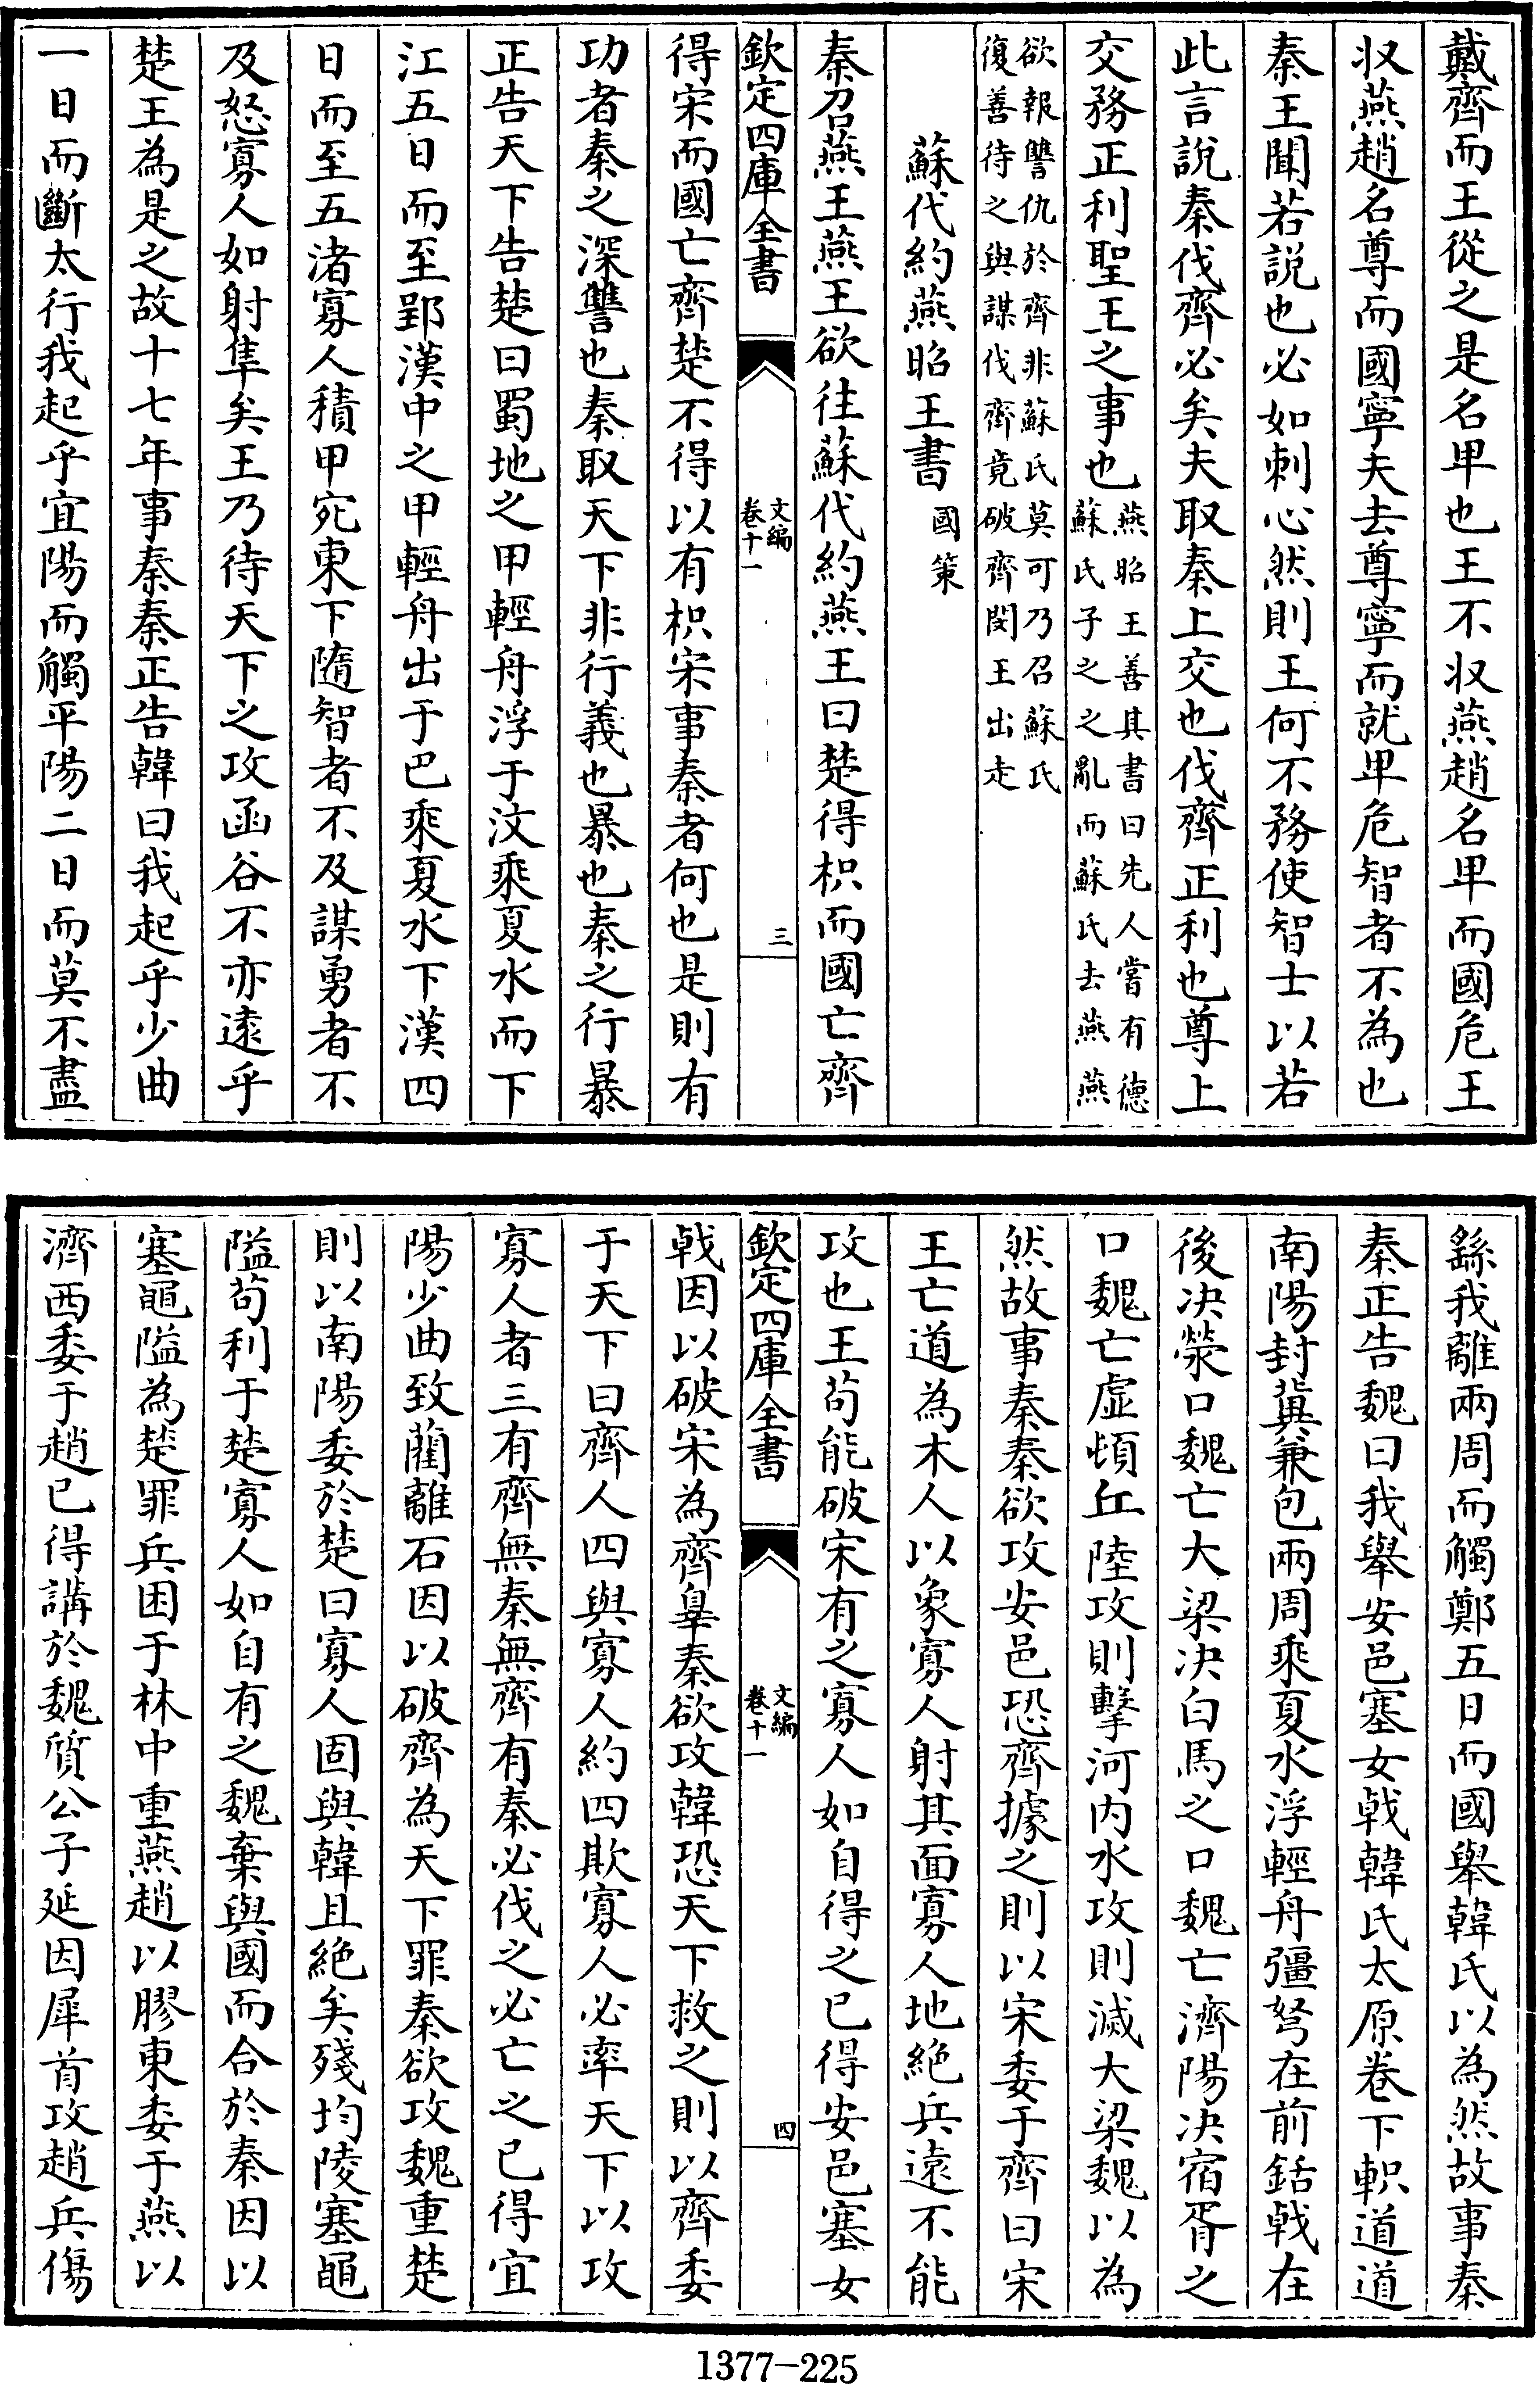 戴齊而王從之是名卑也王不収燕趙名卑而國危王
収燕趙名尊而國寧夫去尊寧而就卑危智者不為也
秦王聞若說也必如刺心然則王何不務使智士以若
此言說秦伐齊必矣夫取秦上交也伐齊正利也尊上
交務正利聖王之事也燕昭王善其書曰先人嘗有德
蘇氏子之之亂而蘇氏去燕燕
欲報讐仇於齊非蘇氏莫可乃召蘇氏
復善待之與謀伐齊竟破齊閔王出走
蘇代約燕昭王書國策
秦召燕王燕王欲往蘇代約燕王曰楚得枳而國亡齊
欽定四庫全書
文編
卷十一
三
得宋而國亡齊楚不得以有枳宋事秦者何也是則有
功者秦之深讐也秦取天下非行義也暴也秦之行暴
正告天下告楚曰蜀地之甲輕舟浮于汶乘夏水而下
江五日而至郢漢中之甲輕舟出于巴乘夏水下漢四
日而至五渚寡人積甲宛東下隨智者不及謀勇者不
及怒寡人如射隼矣王乃待天下之攻函谷不亦遠乎
楚王為是之故十七年事秦秦正告韓曰我起乎少曲
一日而斷太行我起乎宜陽而觸平陽二日而莫不盡
繇我離兩周而觸鄭五日而國舉韓氏以為然故事秦
秦正告魏曰我舉安邑塞女戟韓氏太原卷下軹道道
南陽封冀兼包兩周乘夏水浮輕舟彊弩在前銛戟在
後决滎口魏亡大梁决白馬之口魏亡濟陽决宿胥之
口魏亡虛頓丘陸攻則擊河内水攻則滅大梁魏以為
然故事秦秦欲攻安邑恐齊據之則以宋委于齊曰宋
王亡道為木人以象寡人射其面寡人地絶兵遠不能
攻也王苟能破宋有之寡人如自得之已得安邑塞女
欽定四庫全書
文編
卷十一
四
戟因以破宋為齊辠秦欲攻韓恐天下救之則以齊委
于天下曰齊人四與寡人約四欺寡人必率天下以攻
寡人者三有齊無秦無齊有秦必伐之必亡之已得宜
陽少曲致藺離石因以破齊為天下罪秦欲攻魏重楚
則以南陽委於楚曰寡人固與韓且絶矣殘均陵塞黽
隘苟利于楚寡人如自有之魏棄與國而合於秦因以
塞黽隘為楚罪兵困于林中重燕趙以膠東委于燕以
濟西委于趙已得講於魏質公子延因犀首攻趙兵傷
1377-225